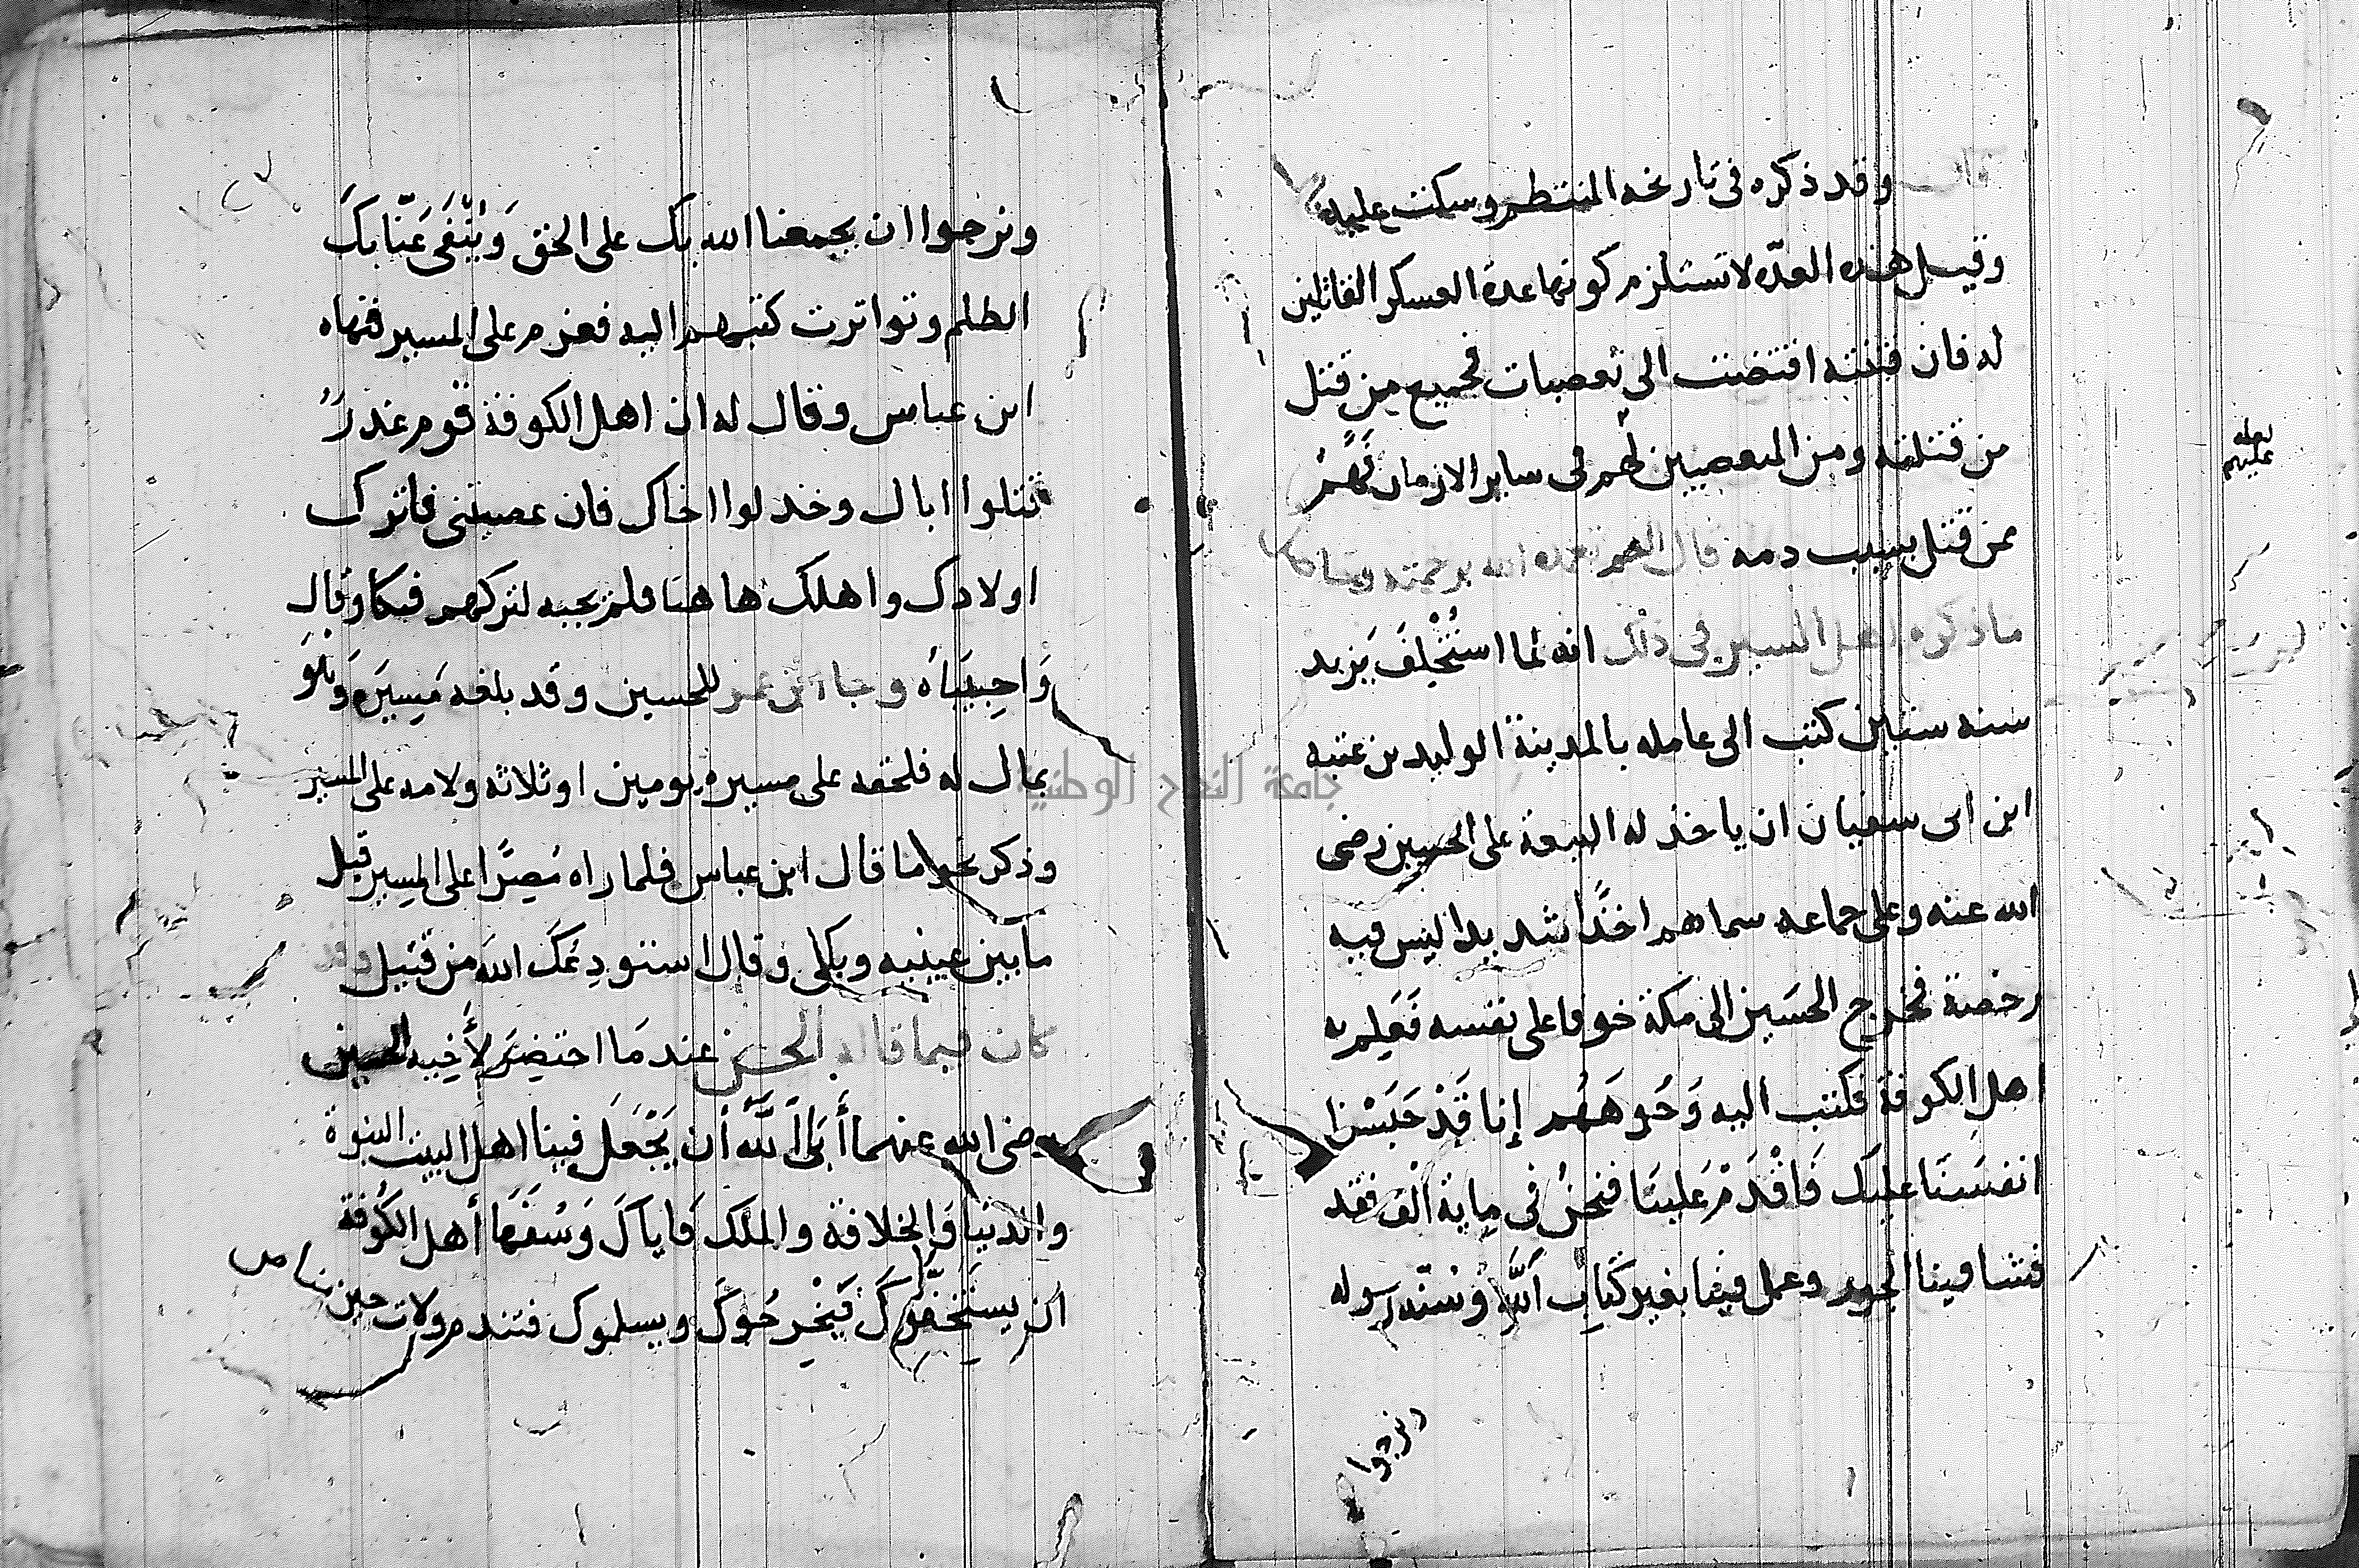 قال وقد ذكره فى تاريخه المنتظم وسكت عليه
وقيل هذه العدّه لا تستلزم كونها عدة العسكر القاتلين
له فان فتنته افتضت الى تعصبات فجميع من قتل
من قتلته ومن المتعصبين لهم فى ساير الازمان فهم
ممن قتل بسبب دمه قال الله برحمته
ما ذكره اهل السير فى ذلك انه لما استُخْلِفَ يَزيد
سنه ستين كتب الى عامله بالمدينة الوليد بن عتبه
ابن ابى سفيان ان ياخذ له البيعة على الحسين رضى
الله عنه وعلى جماعه سماهم اخذًا شديدا ليس فيه
رخصة فخرج الحسَين الى مكة خوفا على نفسه فَعَلِم به
اهل الكوفة فكتب اليه وَجُوهَهُم إنا قَدْ حَبَسْنا
انفسَنَا عليك فَاقْدَمْ عَلينَا فنحنُ فى مِاية الف فقد
فشا فينا الجور وعمل فينا بغير كتابِ اَللَّه وسُنّه رسوله
ونرجوا
لعله
عليهم
ونرجوا ان يجمعنا الله بك على الحق وَيُنْفَى عَنّا بكَ
الظلم وتواترت كتبهم اليه فعزم على المسير فنهاه
ابن عباس وقال له ان اهل الكوفة قوم غدرٌ
قتلوا اباك وخذلوا اخاك فان عصيتنى فاترك
اولادك واهلك هاهنا فلم يجبه لتركهم فبكا وقال
وَاحِبيَبَاهُ وجا ابن عمر للحسين وقد بلغه مَسِيَره وَهُوَ
بمال له فلحقه على مسيره يومين او ثلاثه ولامه على المسير
وذكر نحو ما قال ابن عباس فلما راه مُصِرًّا على المسير قبل
ما بين عينيه وبكى وقال استودِعُكَ اللهَ من قتيل وقد
كان فيما قاله الحسن عندمَا احتضِرَ لأَخيه الحسين
رضى الله عنهما أَبَى اَللَّه أن يَجْعَلَ فينا اهل البيت النبوة
والدنيا وَالخلافة والملك فَاياكَ وَسُفَهَا أَهل الكُوفة
ان يستَخفّوكَ فيَخرجُوكَ ويسلموك فتندم ولات حين مناص
جامعة النجاح الوطنية